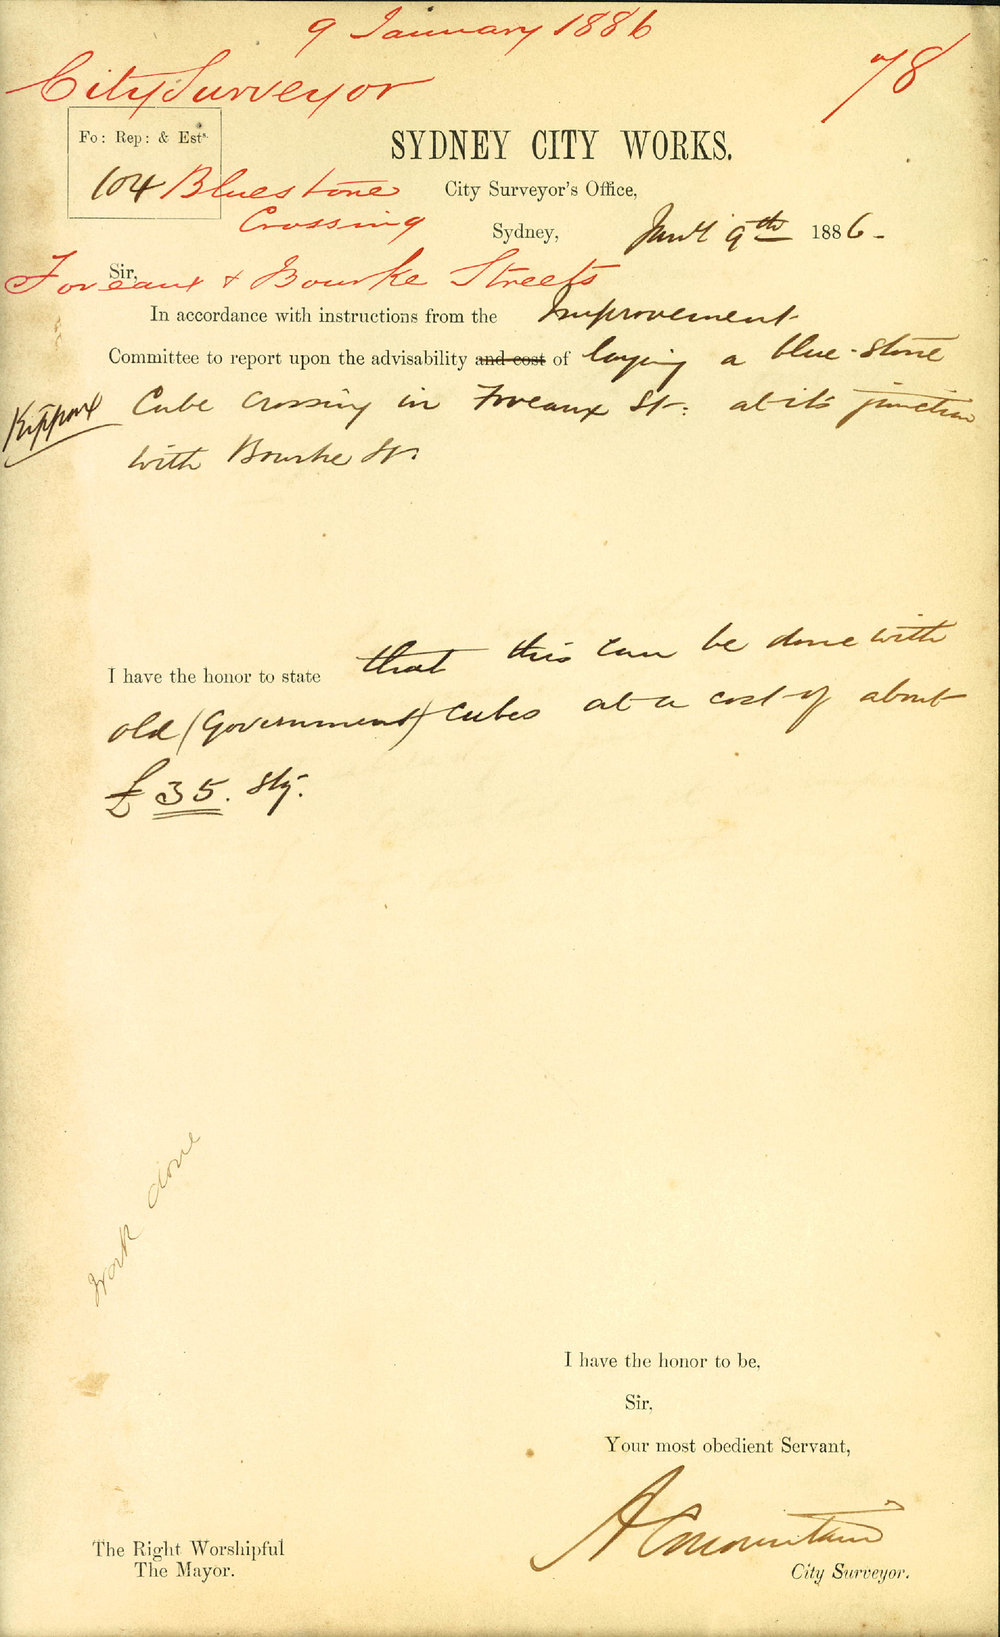 9 January 1886
78
City Surveyor
Fo: Rep: & Ests.
104 Bluestone
Crossing
SYDNEY CITY WORKS.
City Surveyor's Office,
Sydney, Jany 9th 1886-
Foveaux & Bourke Streets
Sir,
In accordance with instructions from the Improvement
Committee to report upon the advisability and cost of laying a blue-stone
Kippax
Cube crossing in Foveaux St: at its junction
with Bourke St.
I have the honor to state that this can be done with
old (Government) cubes at a cost of about
£35. Stg.
work done
I have the honor to be,
Sir,
Your most obedient Servant,
A C Mountain
City Surveyor.
The Right Worshipful
The Mayor.